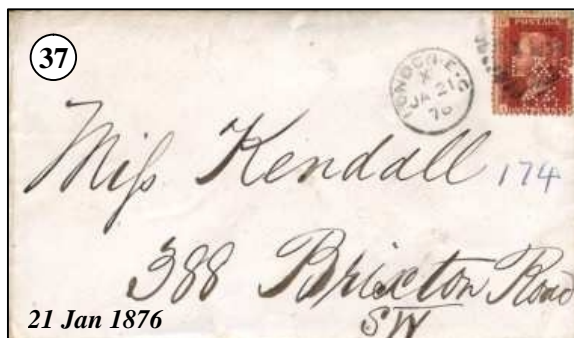 37
POSTAGE
LONDON·E·C
X
JA 21
76
Miſs Kendall
174
388 Brixton Road
SW
21 Jan 1876